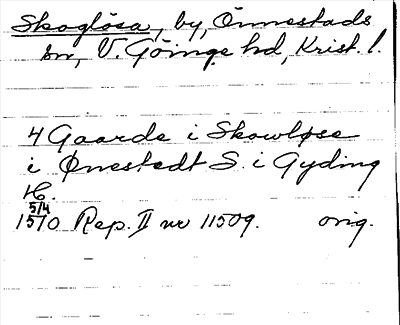 Skoglösa, by, Önnestads
sn, V. Göinge hd, Krist. l.
4 Gaarde i Skowløse
i Ønestedt S. i Gyding
H.
5/4
1570 Rep. II nr 11509. orig.